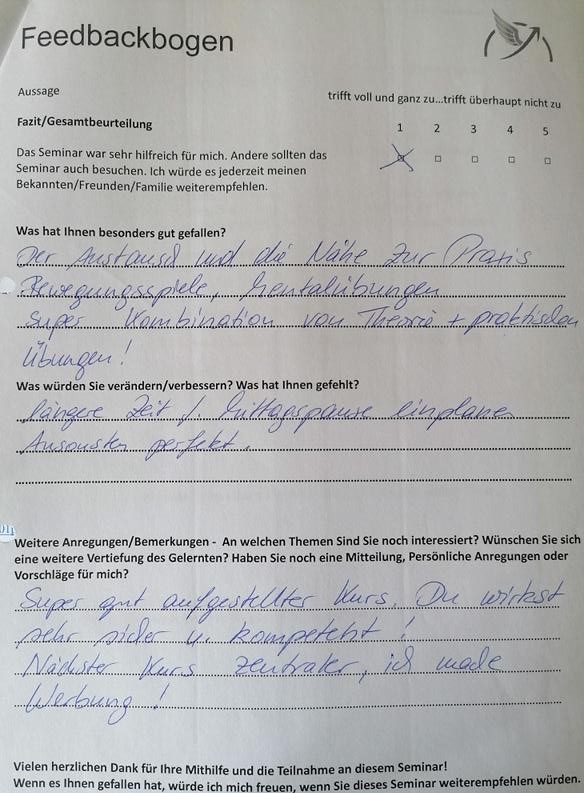 Feedbackbogen
Aussage
trifft voll und ganz zu...trifft überhaupt nicht zu
Fazit/Gesamtbeurteilung
1 2 3 4 5
Das Seminar war sehr hilfreich für mich. Andere sollten das
Seminar auch besuchen. Ich würde es jederzeit meinen
Bekannten/Freunden/Familie weiterempfehlen.
Was hat Ihnen besonders gut gefallen?
Der Austausch und die Nähe zur Praxis
Bewegungsspiele, Mentalübungen
super Kombination von Theorie + praktischen
Übungen!
Was würden Sie verändern/verbessern? Was hat Ihnen gefehlt?
längere Zeit f. Mittagspause einplanen
Ansonsten perfekt.
Weitere Anregungen/Bemerkungen - An welchen Themen Sind Sie noch interessiert? Wünschen Sie sich
eine weitere Vertiefung des Gelernten? Haben Sie noch eine Mitteilung, Persönliche Anregungen oder
Vorschläge für mich?
Super gut aufgestellter Kurs. Du wirkst
sehr sicher u. kompetent!
Nächster Kurs zentraler, ich mache
Werbung!
Vielen herzlichen Dank für Ihre Mithilfe und die Teilnahme an diesem Seminar!
Wenn es Ihnen gefallen hat, würde ich mich freuen, wenn Sie dieses Seminar weiterempfehlen würden.